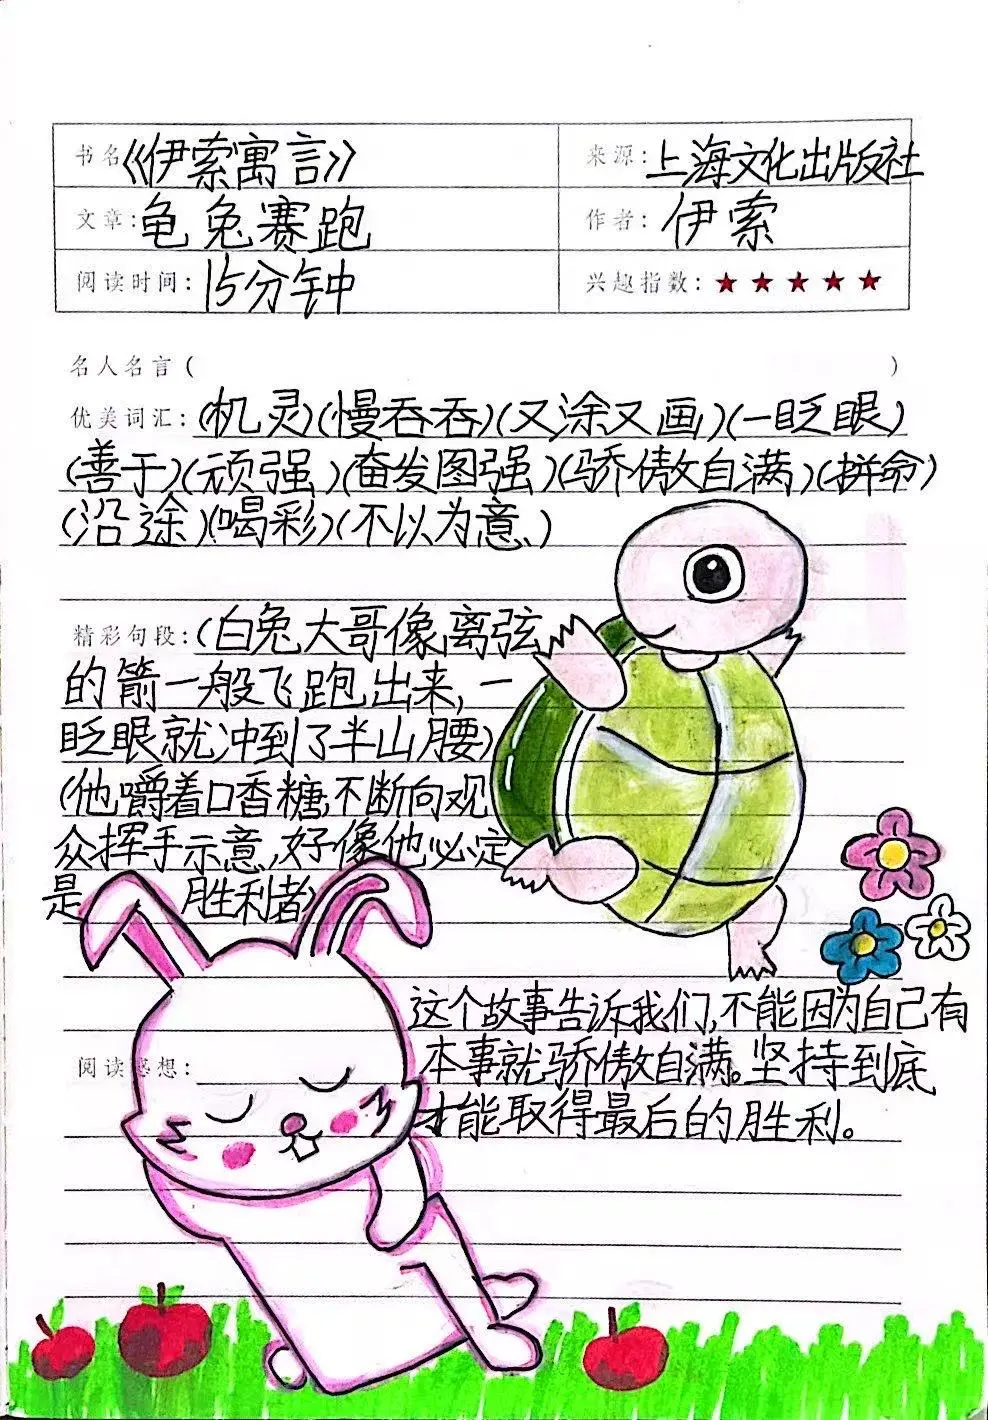 书名《伊索寓言》 来源:上海文化出版社
文章:龟兔赛跑 作者:伊索
阅读时间:15分钟 兴趣指数:★★★★★
名人名言( )
优美词汇:(机灵)(慢吞吞)(又涂又画)(一眨眼)
(善于)(顽强)(奋发图强)(骄傲自满)(拼命)
(沿途)(喝彩)(不以为意、)
精彩句段:(白兔大哥像离弦
的箭一般飞跑出来,一
眨眼就冲到了半山腰)
(他嚼着口香糖,不断向观
众挥手示意,好像他必定
是 胜利者)
阅读感想:
这个故事告诉我们,不能因为自己有
本事就骄傲自满。坚持到底
才能取得最后的胜利。